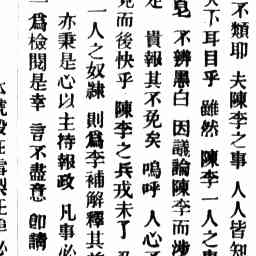 不類耶 夫陳李之事 人人皆知
天下耳目乎 雖然 陳李一人之事
皂 不辨黑白 因議論陳李而涉
定 貴報其不免矣 嗚呼 人心不
竟而後快乎 陳李之兵戎未了
一人之奴隷 則爲李補解釋其
亦秉是心以主持報政 凡事必
一爲檢閱是幸 言不盡意 卽請